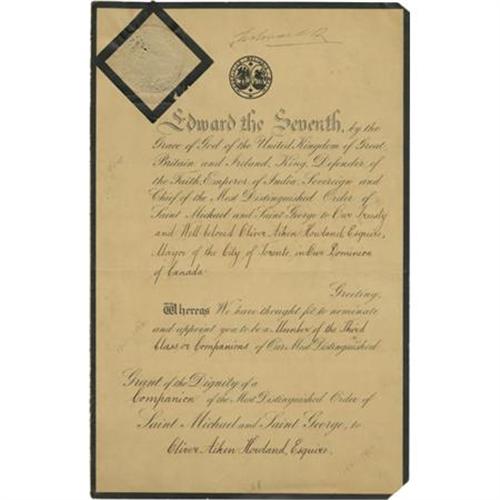 Edward R
Edward the Seventh, by the
Grace of God of the United Kingdom of Great
Britain and Ireland, King, Defender of
the Faith, Emperor of India, Sovereign and
Chief of the Most Distinguished Order of
Saint Michael and Saint George to Our trusty
and Well-beloved Oliver Aiken Howland, Esquire,
Mayor of the City of Toronto, in Our Dominion
of Canada
Greeting,
Whereas We have thought fit to nominate
and appoint you to be a Member of the Third
Class or Companions of Our Most Distinguished
Grant of the Dignity of a
Companion of the Most Distinguished Order of
Saint Michael and Saint George, to
Oliver Aiken Howland, Esquire.